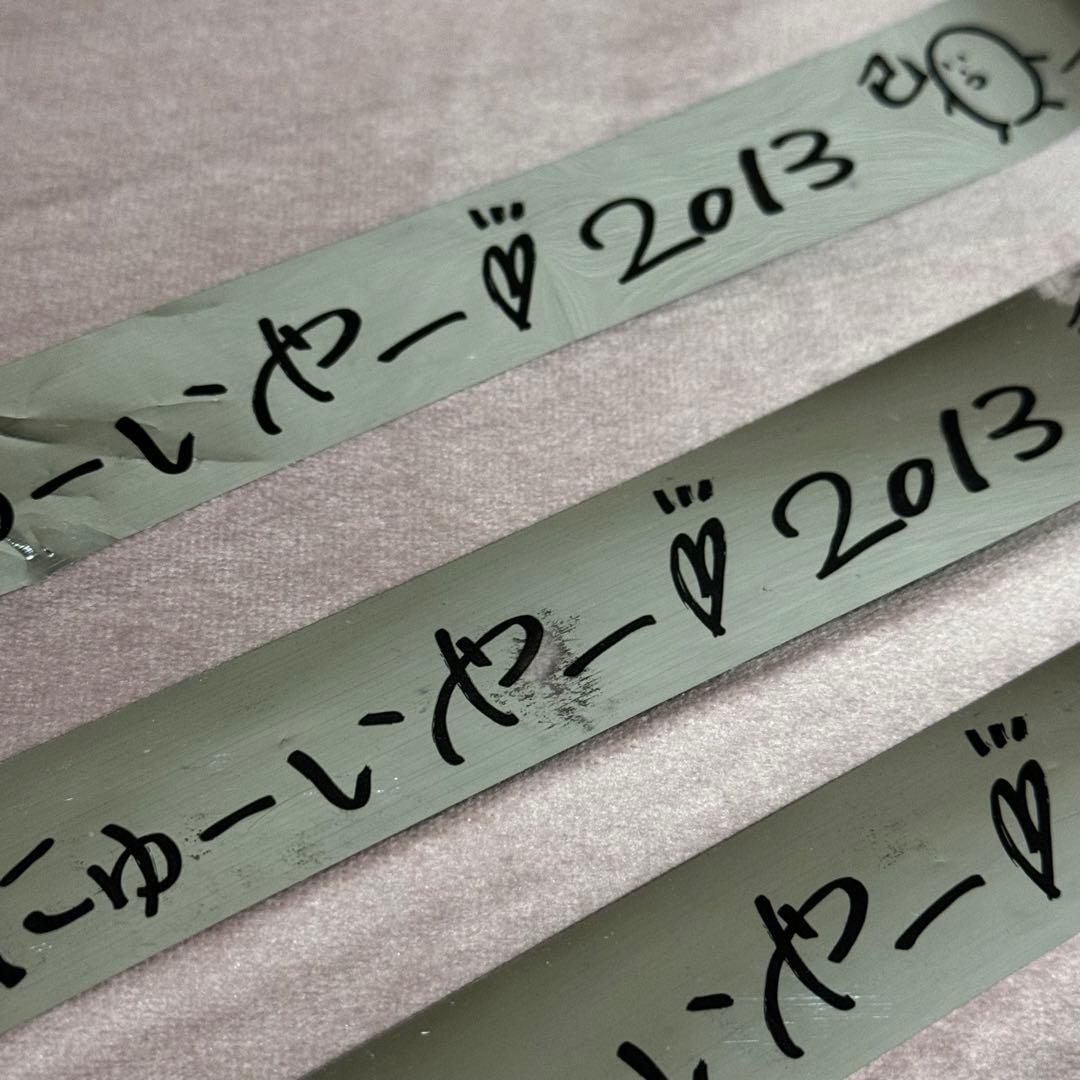 ゅーいやー 2013 己
にゅーいやー 2013
いやー